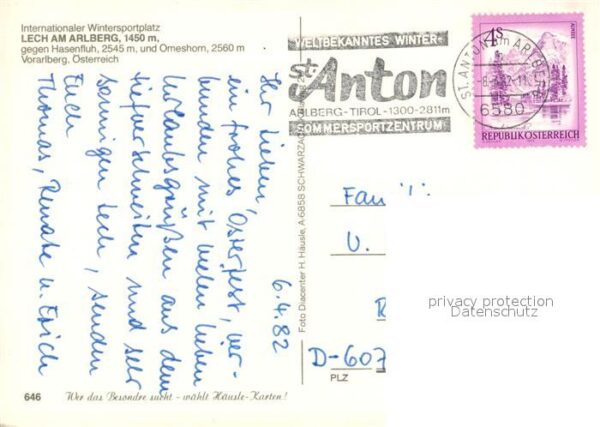 Internationaler Wintersportplatz
LECH AM ARLBERG, 1450 m,
gegen Hasenfluh, 2545 m, und Omeshorn, 2560 m
Vorarlberg, Österreich
6.4.82
Ihr Lieben,
ein frohes Osterfest, ver-
bunden mit vielen lieben
Urlaubsgrüßen aus dem
tiefverschneiten und sehr
sonnigen Lech, senden
Euch
Thomas, Renate u. Erich
646
Wer das Besondre sucht - wählt Häusle-Karten!
Foto Diacenter H. Häusle, A-6858 SCHWARZAC
WELTBEKANNTES WINTER-
St. Anton
ARLBERG-TIROL-1300-2811m
SOMMERSPORTZENTRUM
ST. ANTON am ARLBERG
6580
4S
REPUBLIK ÖSTERREICH
Fam
U.
D-607
PLZ
privacy protection
Datenschutz